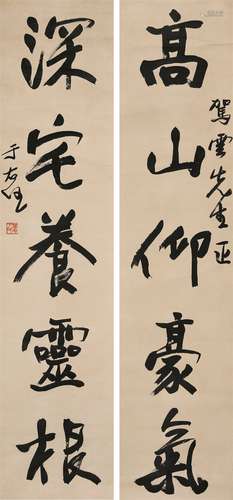 高山仰豪氣
駕雲先生正
深宅養靈根
于右任